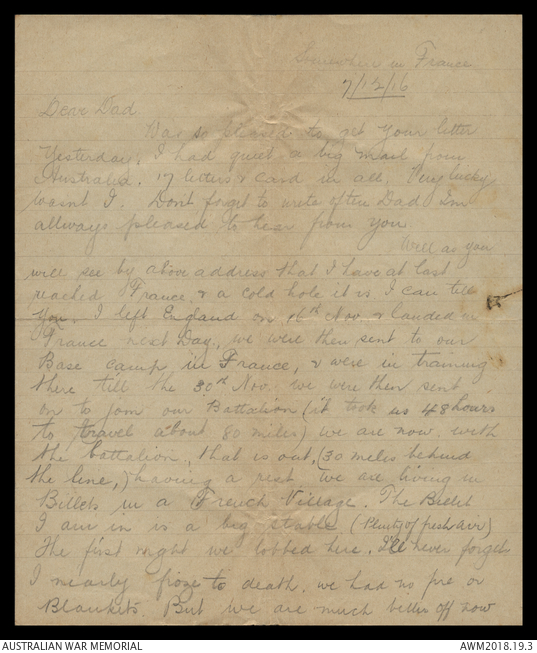 Somewhere in France
7/12/16
Dear Dad
Was so pleased to get your letter
Yesterday, I had quiet a big mail from
Australia. 17 letters & card in all. Very lucky
wasnt I. Dont forget to write often Dad Im
allways pleased to hear from you.
Well as you
will see by above address that I have at last
reached France, & a cold hole it is I can tell
you. I left England on 16th Nov & landed in
France next Day, we were then sent to our
Base camp in France, & were in training
there till the 30th Nov. we were then sent
on to join our Battalion (it took us 48 hours
to travel about 80 miles) we are now with
the battalion, that is out, (30 miles behind
the line,) having a rest. we are living in
Billets in a French Village. The Billet
I am in is a big stable (Plenty of fresh air)
The first night we lobbed here, I'll never forget
I nearly froze to death, we had no fire or
Blankets. But we are much better off now
AUSTRALIAN WAR MEMORIAL
AWM2018.19.3